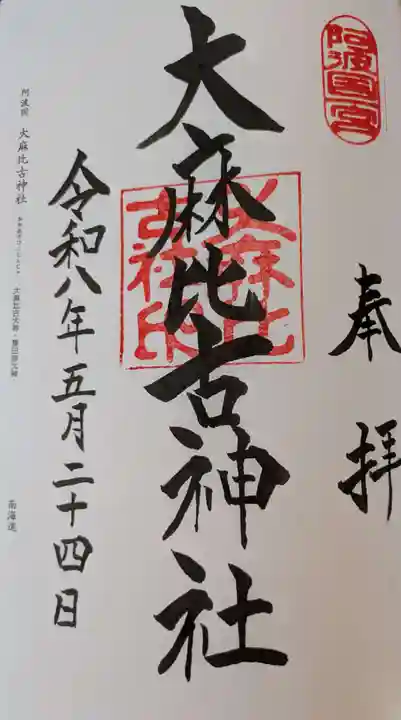 阿波国一宮
奉拝
大麻比古神社
大麻比古社印
令和八年五月二十四日
阿波国 大麻比古神社 おおあさひこじんじゃ 大麻比古大神・猿田彦大神
南海道